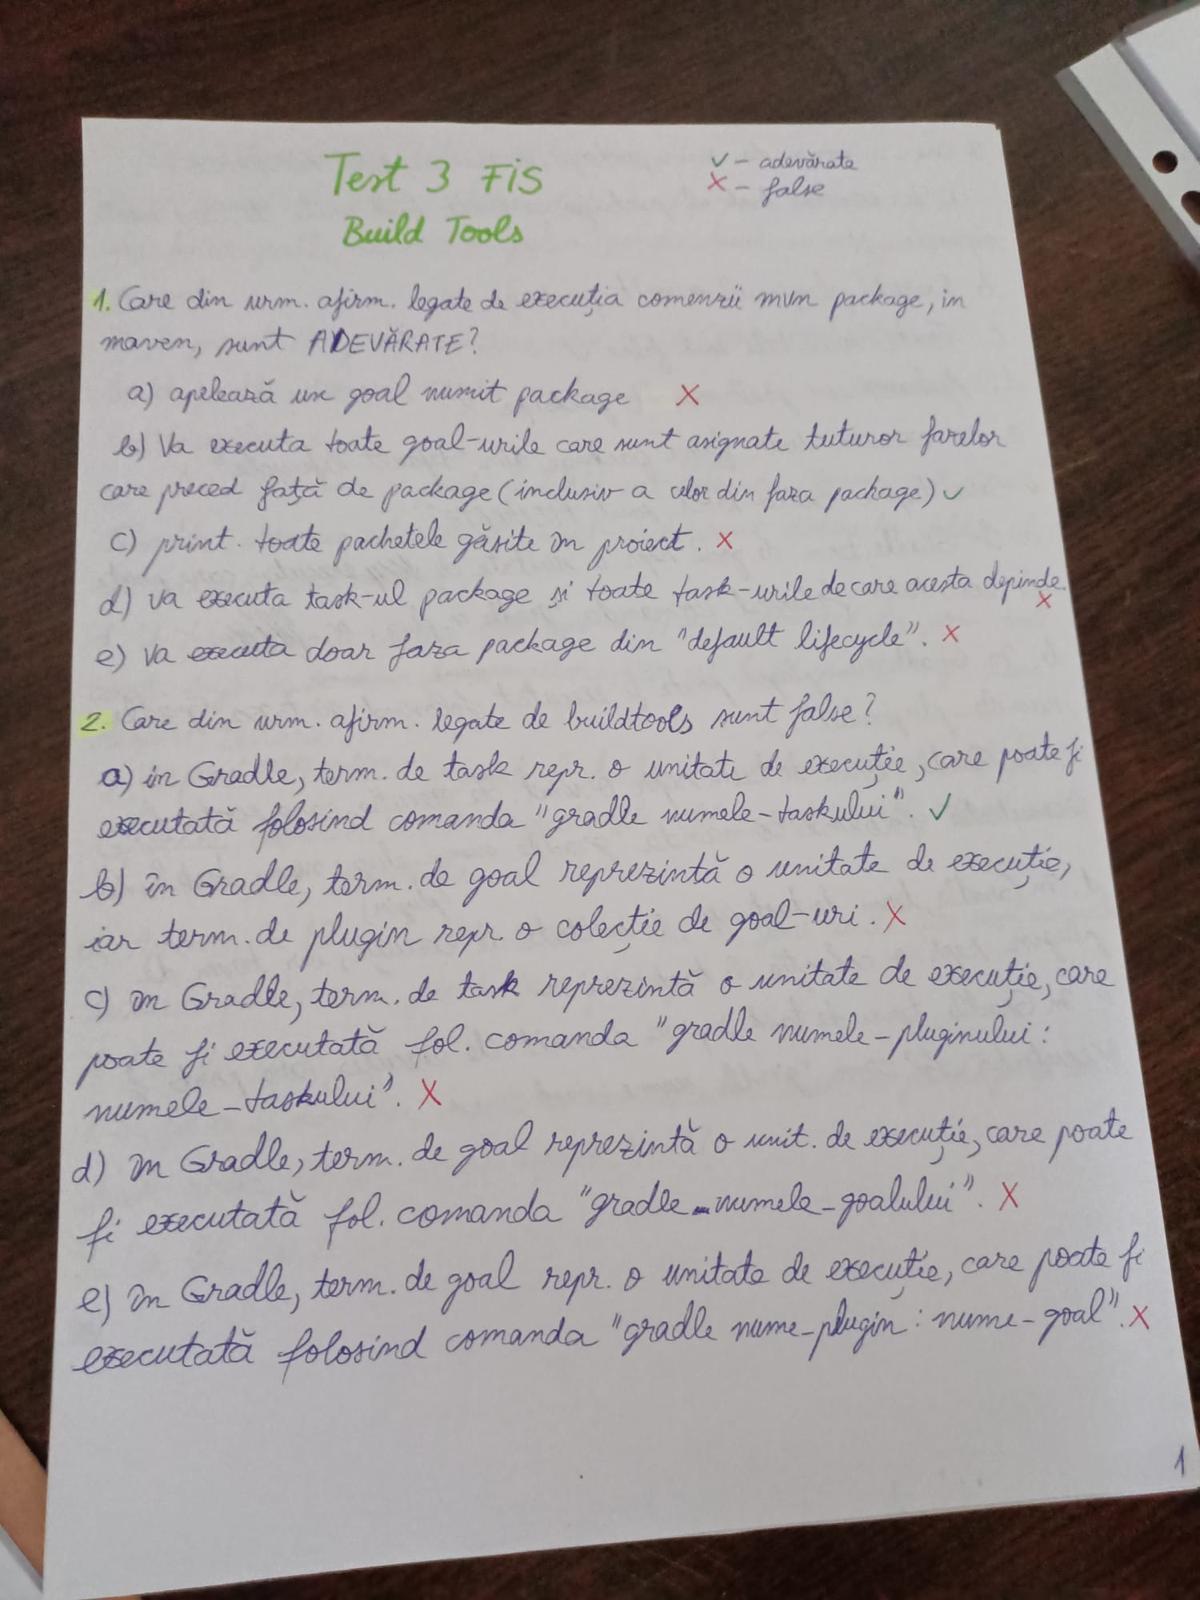 Test 3 FiS
Build Tools
✓ - adevărate
✗ - false
1. Care din urm. afirm. legate de execuția comenzii mvn package, in
maven, sunt ADEVĂRATE?
a) apelează un goal numit package ✗
b) Va executa toate goal-urile care sunt asignate tuturor fazelor
care preced față de package (inclusiv a celor din faza package) ✓
c) print. toate pachetele găsite în proiect. ✗
d) va executa task-ul package și toate task-urile de care acesta depinde ✗
e) va executa doar faza package din "default lifecycle". ✗
2. Care din urm. afirm. legate de buildtools sunt false?
a) in Gradle, term. de task repr. o unitate de execuție, care poate fi
executată folosind comanda "gradle numele-taskului". ✓
b) în Gradle, term. de goal reprezintă o unitate de execuție,
iar term. de plugin repr. o colecție de goal-uri. ✗
c) în Gradle, term. de task reprezintă o unitate de execuție, care
poate fi executată fol. comanda "gradle numele-pluginului:
numele-taskului". ✗
d) în Gradle, term. de goal reprezintă o unit. de execuție, care poate
fi executată fol. comanda "gradle numele-goalului". ✗
e) în Gradle, term. de goal repr. o unitate de execuție, care poate fi
executată folosind comanda "gradle nume-plugin: nume-goal". ✗
1